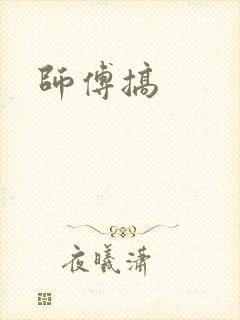 師傅搞
夜曦潇